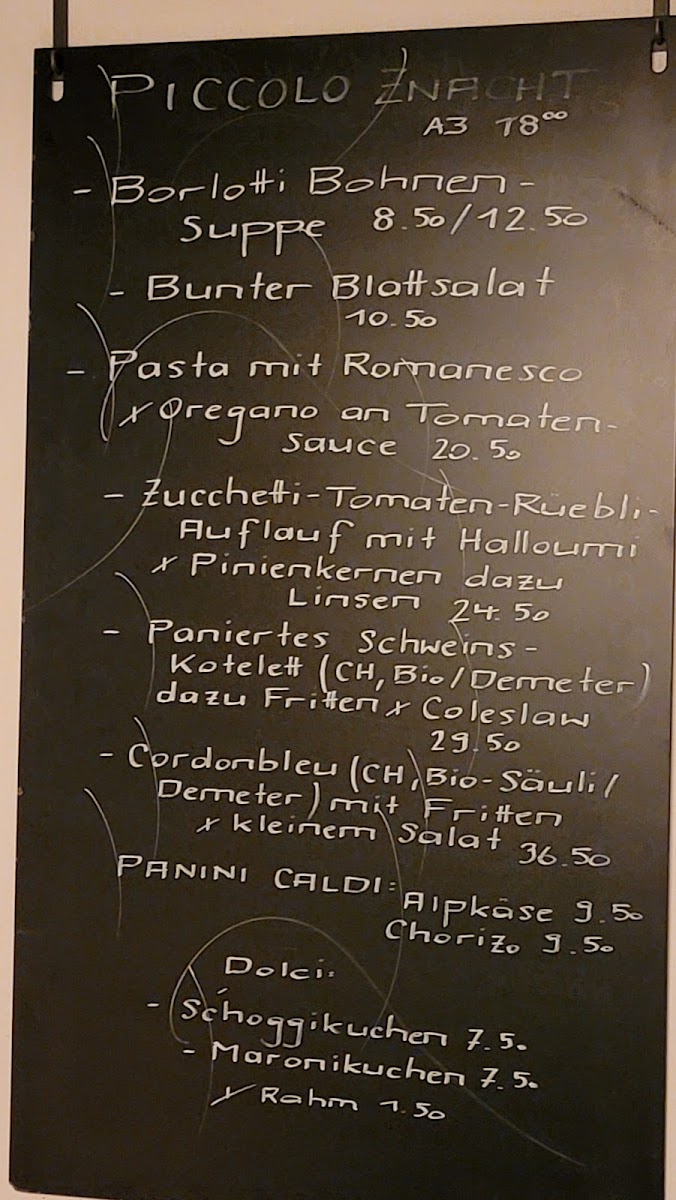 PICCOLO ZNACHT
A3 18⁰⁰
- Borlotti Bohnen-
Suppe 8.50/12.50
- Bunter Blattsalat
10.50
- Pasta mit Romanesco
+ Oregano an Tomaten-
sauce 20.50
- Zucchetti-Tomaten-Rüebli-
Auflauf mit Halloumi
+ Pinienkernen dazu
Linsen 24.50
- Paniertes Schweins-
Kotelett (CH, Bio/Demeter)
dazu Fritten + Coleslaw
29.50
- Cordonbleu (CH, Bio-Säuli/
Demeter) mit Fritten
+ kleinem Salat 36.50
PANINI CALDI: Alpkäse 9.50
Chorizo 9.50
Dolci:
- Schoggikuchen 7.50
- Maronikuchen 7.50
+ Rahm 1.50